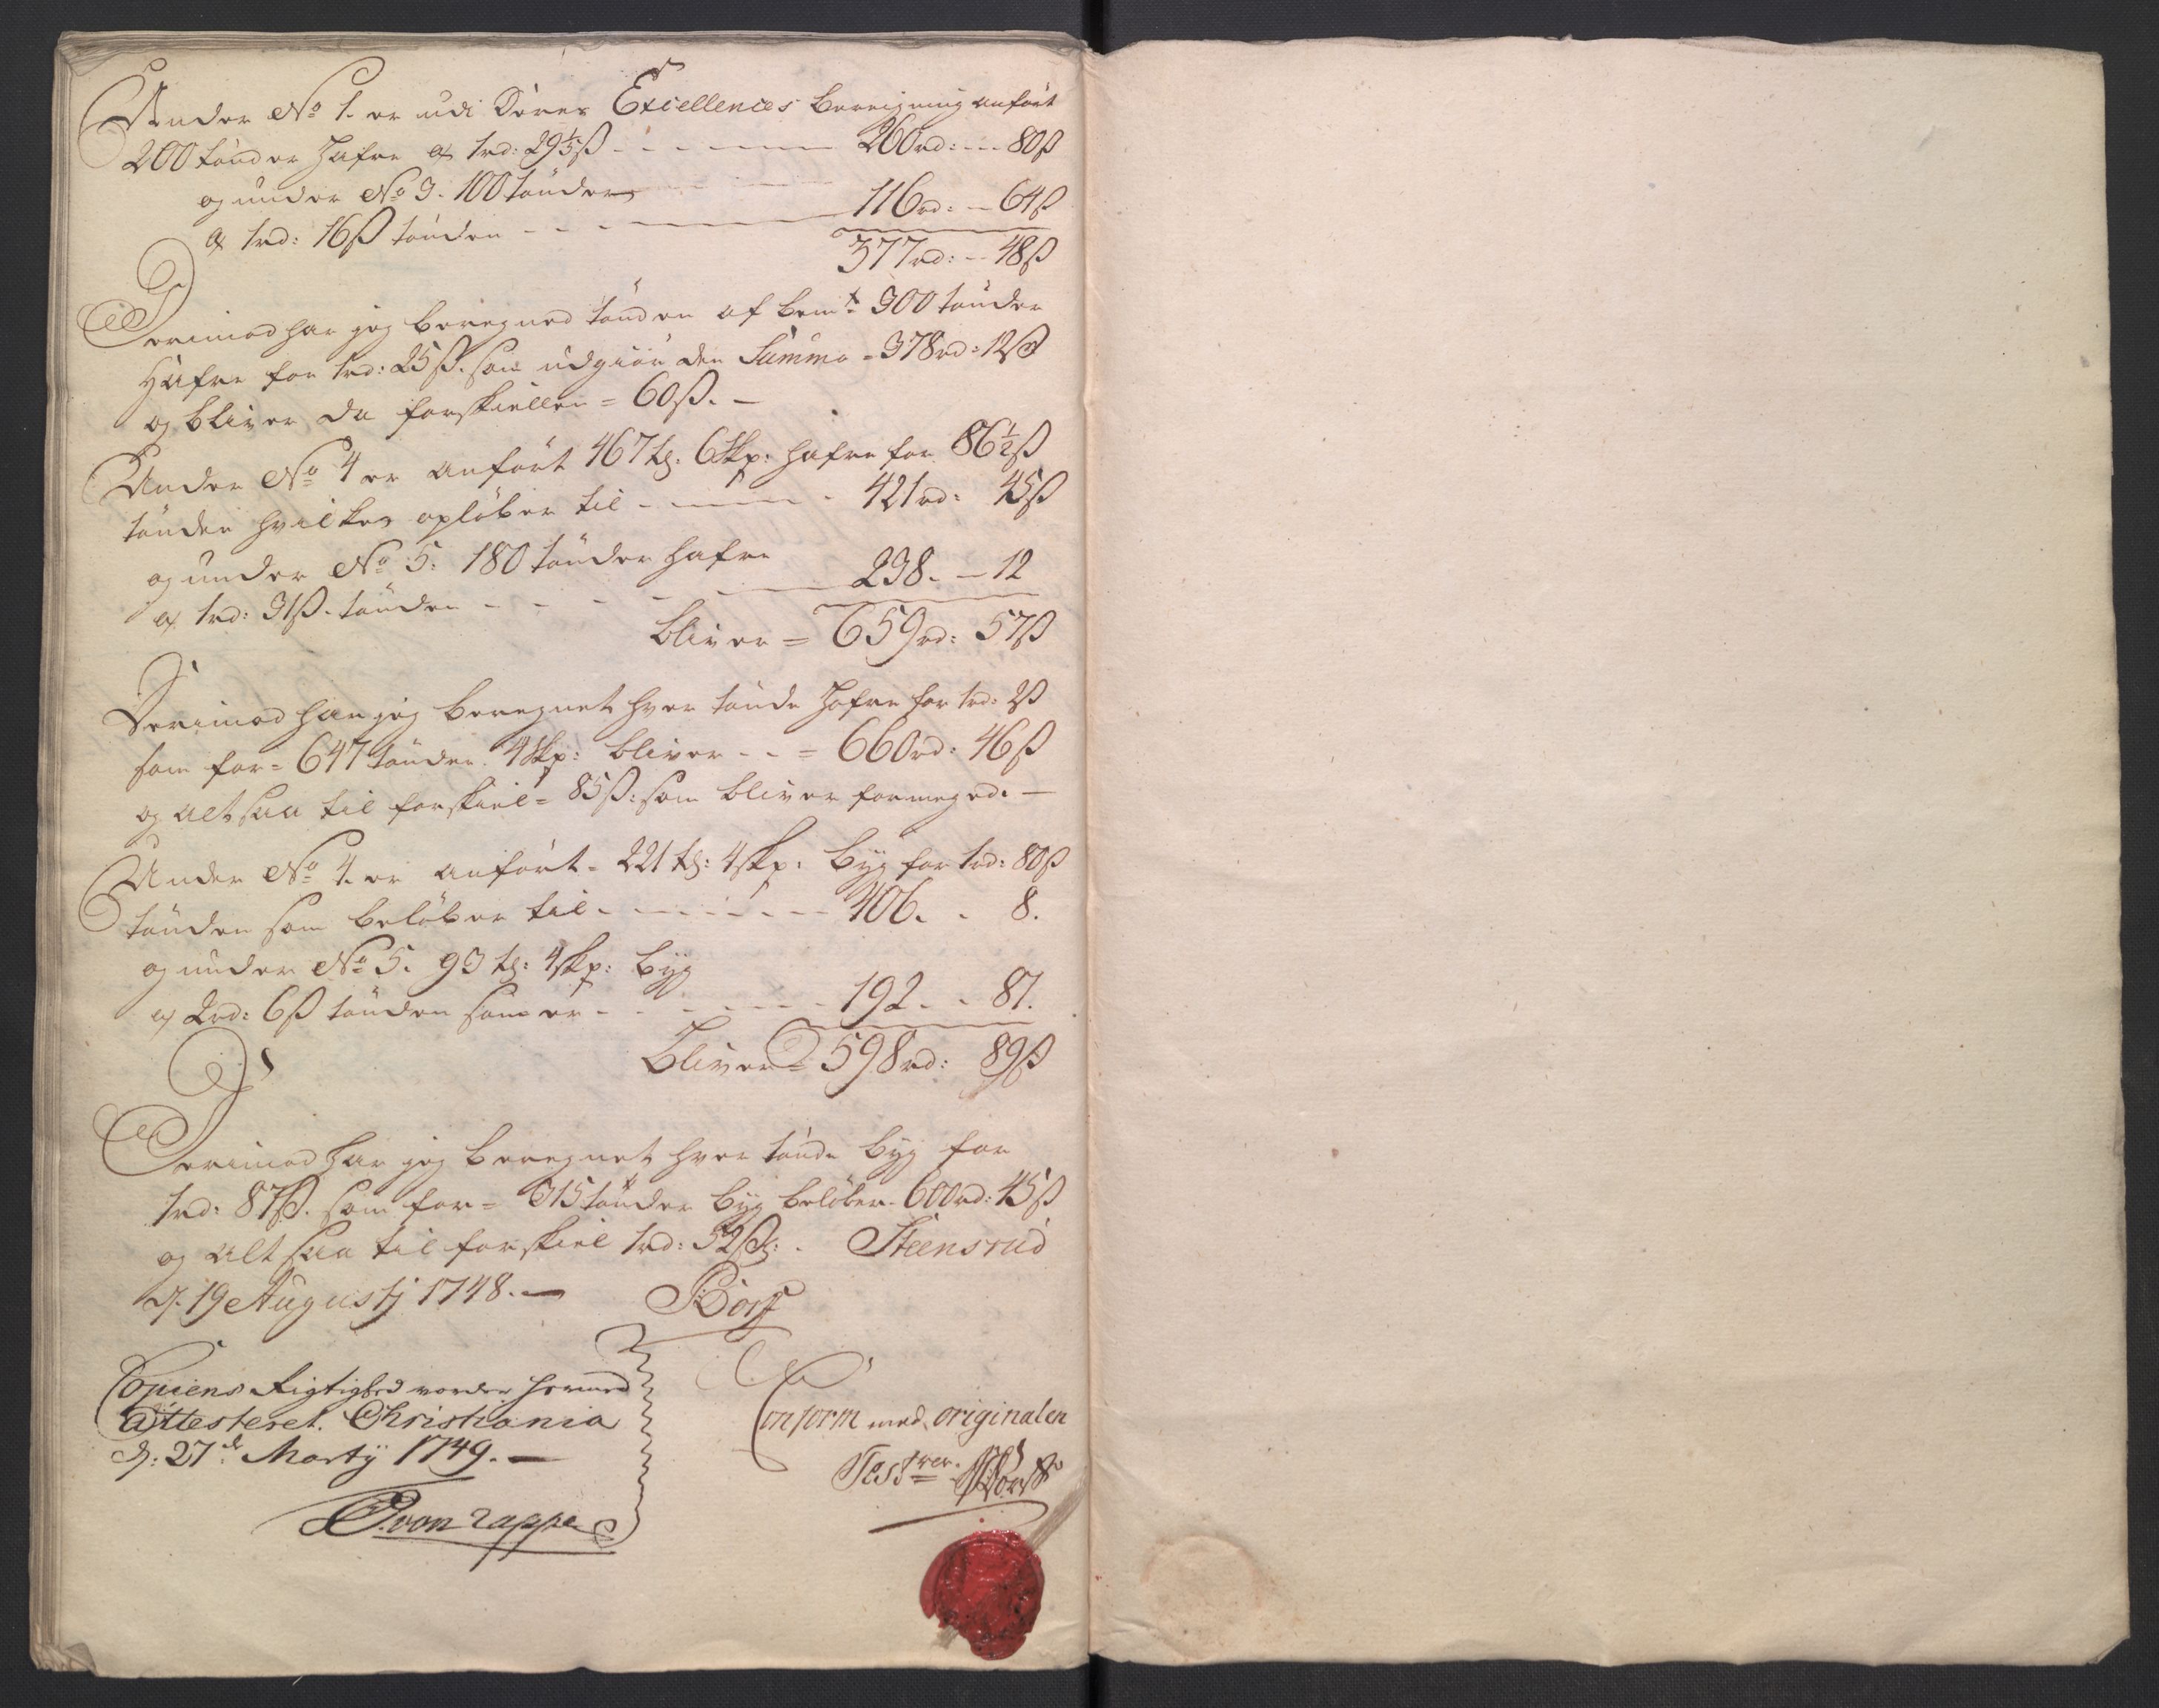 Under No 1. er udi Deres Excellences beregning anfört
200 tönder Hafre a 1rd: 29⅕ß - - - 260rd: -- 80ß
og under No 3. 100 tönder
a 1rd: 16ß tönden - - - 116rd: - 64ß
377rd: -- 48ß
Derimod har jeg beregned tönden af bemte 300 tönder
Hafre for 1rd: 25ß. som udgiör den Summa = 378rd: 12ß
og bliver da forskiellen = 60ß. -
Under No 4 er anfört 467 tr: 6 skp: hafre for 86½ß
tönden hvilket oplöber til - - - 421rd: 45ß
og under No 5: 180 tönder hafre
a 1rd: 31ß. tönden - - - 238. - 12
bliver = 659rd: 57ß
Derimod har jeg beregnet hver tönde Hafre for 1rd: 2ß
som for = 647 tönder 4 skp: bliver - - = 660rd: 46ß
og altsaa til forskiel = 85ß: som bliver formeged. -
Under No 4. er anfört = 221 tr: 4 skp: byg for 1rd: 80ß
tönden som belöber til - - - 406. - 8.
og under No 5. 93 tr: 4 skp: byg
a 2rd: 6ß tönden som er - - - 192. - 81.
bliver = 598rd: 89ß
Derimod har jeg beregnet hver tönde byg for
1rd: 87ß. som for = 315 tönder byg belöber. 600rd: 45ß
og alt saa til forskiel 1rd: 52ß: . Steensrud
d. 19 Augustj 1748. -
Copiens Rigtighed vorder hermed
attesteret. Christiania
d: 27de Martÿ 1749. -
von Zappe
Conform med originalen